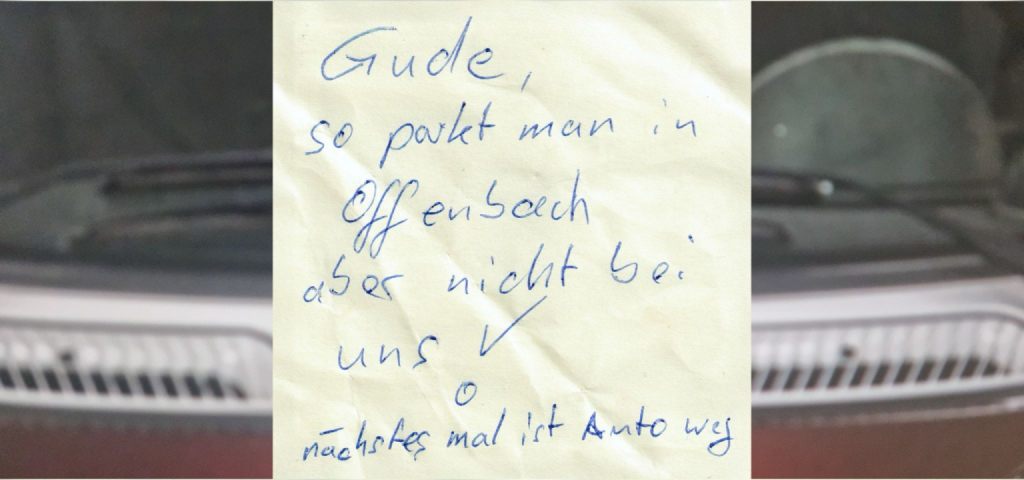 Gude,
so parkt man in
Offenbach
aber nicht bei
uns!
nächstes mal ist Auto weg